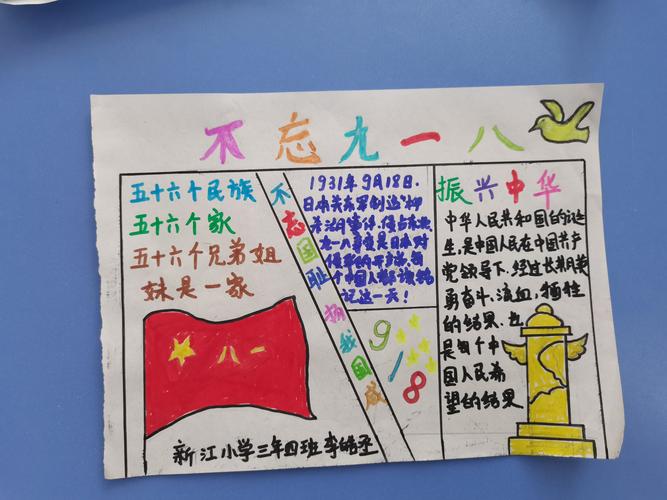 不忘九一八
五十六个民族
五十六个家
五十六个兄弟姐
妹是一家
八一
新江小学三年四班李皓丞
不忘国耻 扬我国威
1931年9月18日.
日本关东军制造"柳
条湖事件,侵占东北
九一八事变是日本对
每
个中国人都该铭
记这一天!
9
1
8
振兴中华
中华人民共和国的诞
生,是中国人民在中国共产
党领导下.经过长期英
勇奋斗、流血,牺牲
的结果.也
是每个中
国人民希
望的结果